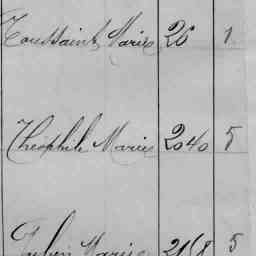 Toussaint Marie 20 1
Théophile Marie 2040 5
Marie 2168 5